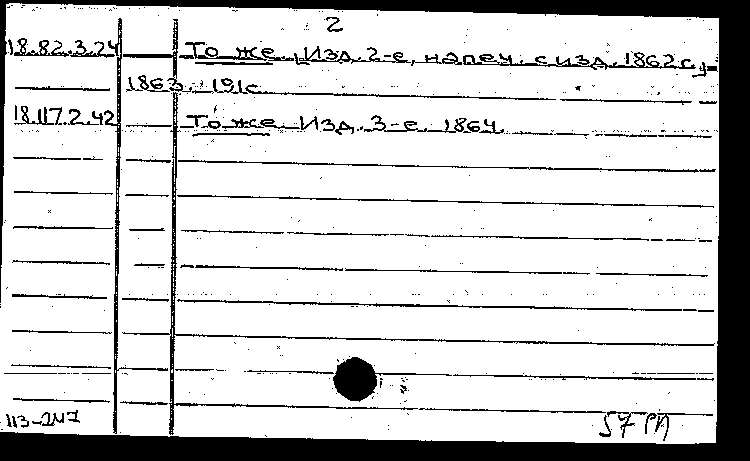 2
18.82.3.24 То же. [Изд. 2-е, напеч. с изд. 1862 г.]
1863. 191с.
18.117.2.42 То же. Изд. 3-е. 1864.
57 РЛ